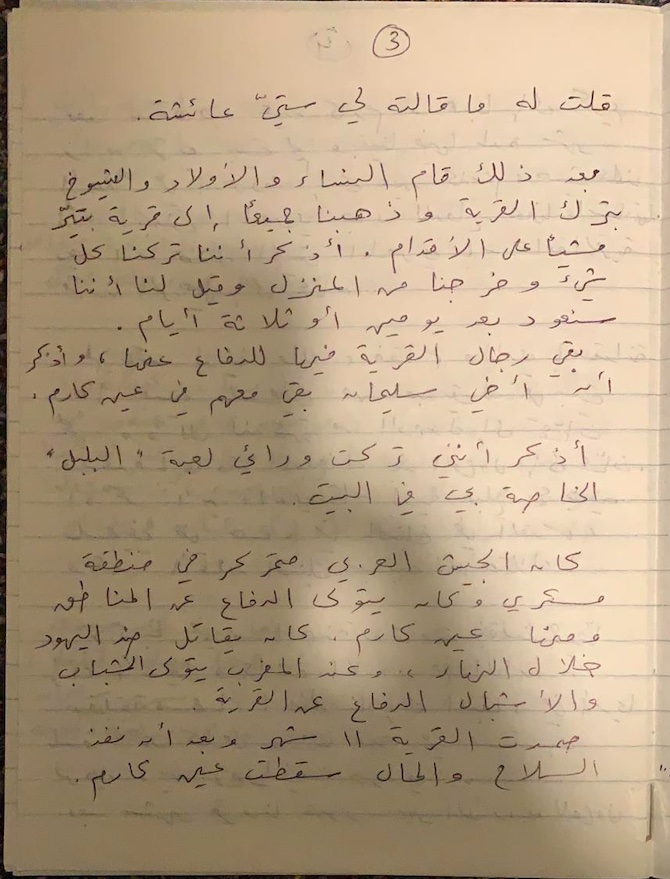 3
قلت له ما قالته لي ستيّ عائشة.
بعد ذلك قام النساء والأولاد والشيوخ
بترك القرية وذهبنا جميعًا إلى قرية بتّير
مشيًا على الأقدام. أذكر أننا تركنا كل
شيء وخرجنا من المنزل وقيل لنا أننا
سنعود بعد يومين أو ثلاثة أيام.
بقي رجال القرية فيها للدفاع عنها، وأذكر
أن أخي سليمان بقي معهم في عين كارم.
أذكر أنني تركت ورائي لعبة "البلبل"
الخاصة بي في البيت.
كان الجيش العربي متمركز في منطقة
وكان يتولى الدفاع عن المناطق
ومنها عين كارم. كان يقاتل ضد اليهود
خلال النهار، وعند المغرب يتولى الشباب
والأشبال الدفاع عن القرية
صمدت القرية ١١ شهر وبعد أن نفذ
السلاح والمال سقطت عين كارم.